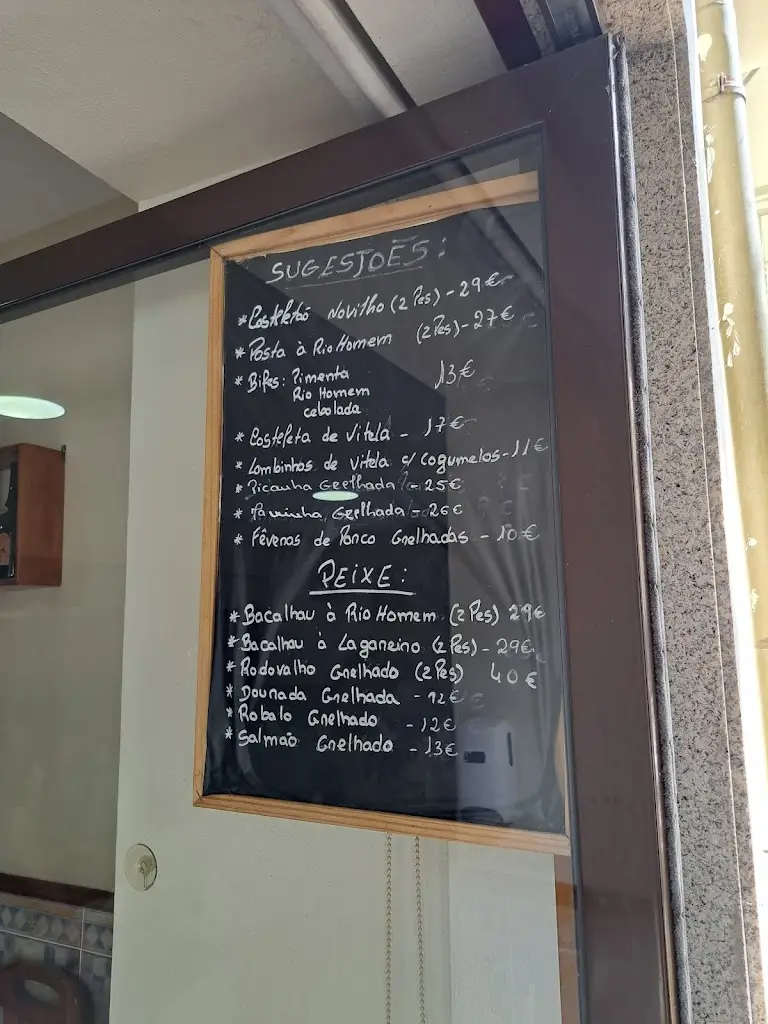 SUGESTÕES:
* Costeletão Novilho (2 Pes) - 29€
* Posta à Rio Homem (2 Pes) - 27€
* Bifes: Pimenta 13€
Rio Homem
cebolada
* Costeleta de Vitela - 17€
* Lombinhos de Vitela c/ Cogumelos - 11€
* Picanha Grelhada - 25€
* Grelhada - 26€
* Fêveras de Porco Grelhadas - 10€
PEIXE:
* Bacalhau à Rio Homem (2 Pes) 29€
* Bacalhau à Lagareiro (2 Pes) - 29€
* Rodovalho Grelhado (2 Pes) 40€
* Dourada Grelhada - 12€
* Robalo Grelhado - 12€
* Salmão Grelhado - 13€